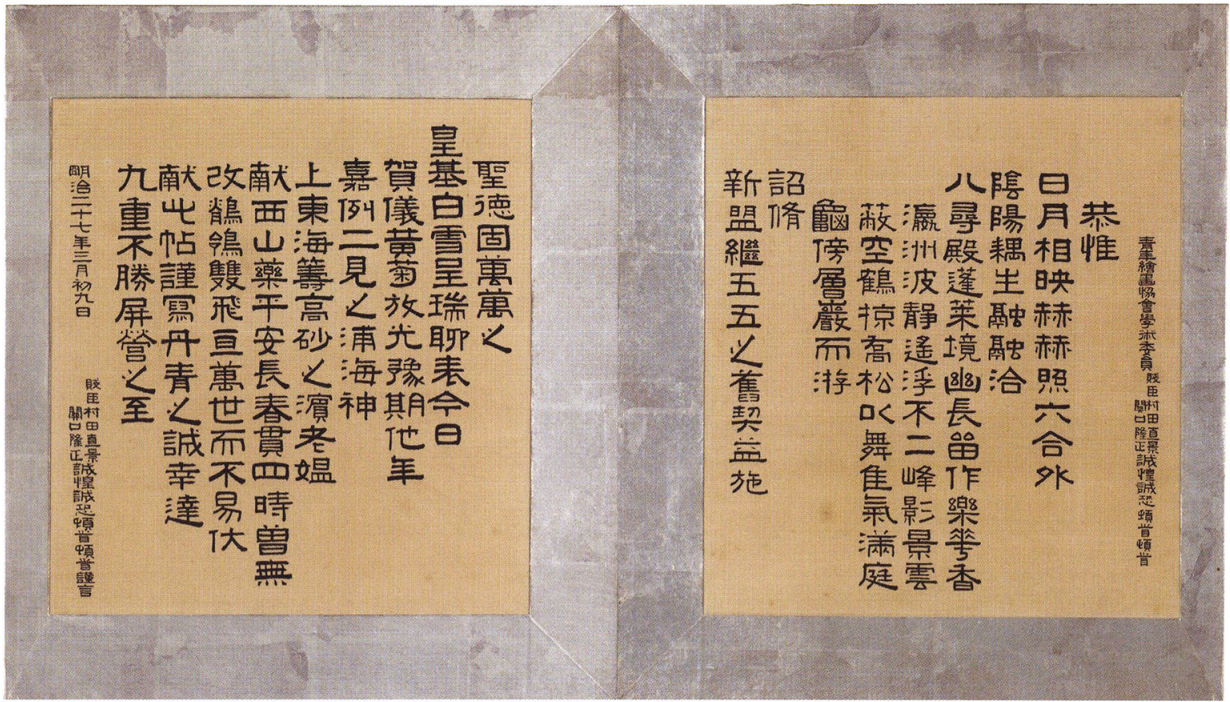 青年繪畫協會學術委員賤臣村田直景
關口隆正誠惶誠恐頓首頓首
恭惟
日月相映赫赫照六合外
陰陽耦生融融洽
八尋殿蓬萊境幽長留作樂華香
瀛洲波靜遙浮不二峰影景雲
蔽空鶴掠喬松以舞佳氣滿庭
龜傍層巖而游
詔脩
新盟繼五五之舊契益施
聖德固萬萬之
皇基白雪呈瑞聊表今日
賀儀黃菊放光豫期他年
嘉例二見之浦海神
上東海籌高砂之濱老媼
献西山藥平安長春貫四時曾無
改鶺鴒雙飛亘萬世而不易伏
献此帖謹寫丹青之誠幸達
九重不勝屏營之至
明治二十七年三月初九日
賤臣村田直景
關口隆正誠惶誠恐頓首頓首謹言